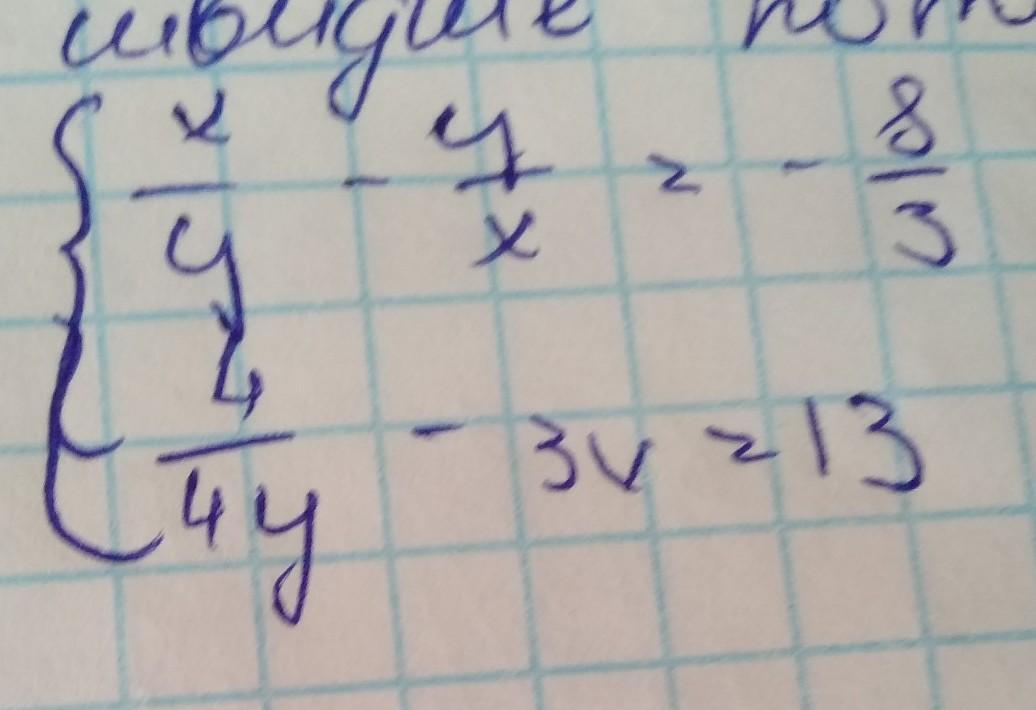 x/y - y/x = - 8/3
4/4y - 3v = 13